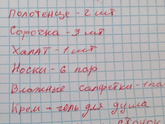 Полотенце - 2 шт
Сорочка - 3 шт
Халат - 1 шт
Носки - 6 пар
Влажные салфетки - 1 па
Крем - гель для душа